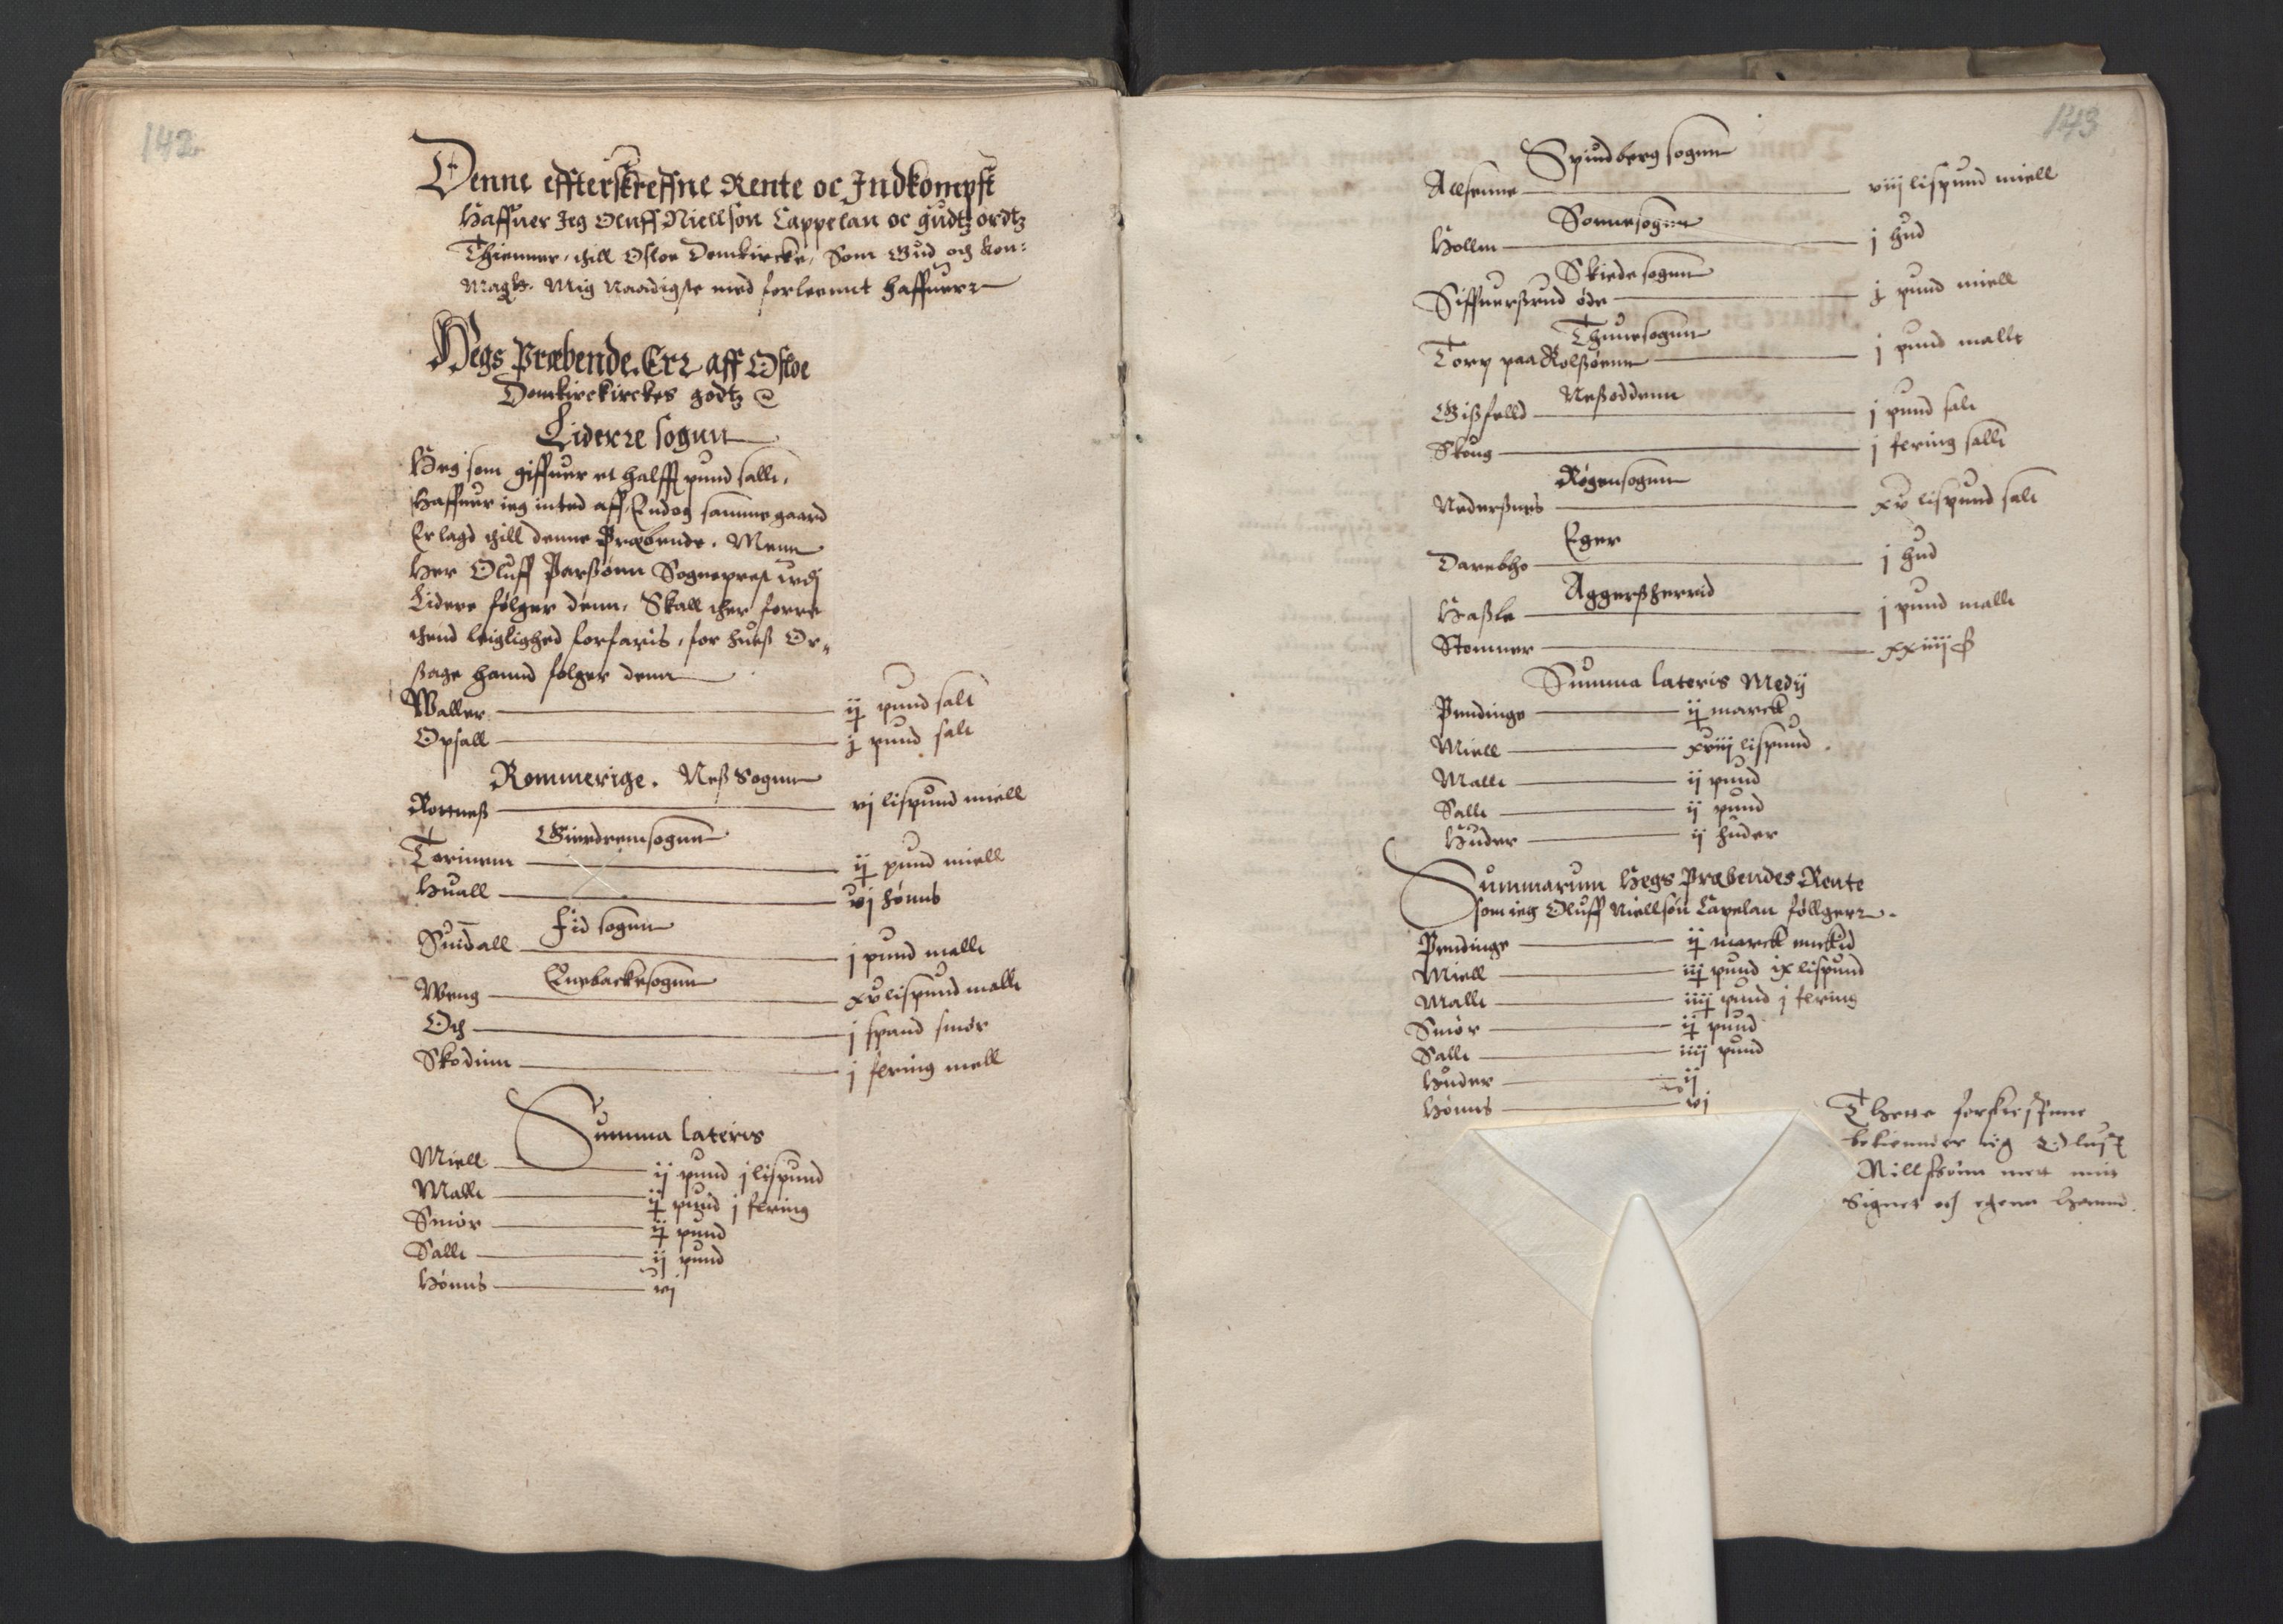 142
Denne effterskreffne Rente oc Indkompst
Haffuer Jeg Oluff Niellson Cappelan oc gudtz ordtz
Thienner, thill Osloe Domkircke, Som Gud och kon:
Mag:tz. Mig Naadigste med forleennt haffuerr
Hegs Præbende. Err aff Osloe
Domkirckirckes godtz
Liderre sogunn
Heg som giffuer et halfft pund sallt,
Haffuer ieg inted aff, Endog samme gaard
Er lagd thill denne Præbende. Menn
Her Oluff Parssønn Sogneprest udj
Lidere følger denn. Skall ther forre
thend leiglighed forfaris, for huess Or=
sage hannd følger denn
Waller ij pund salt
Opsall j pund salt
Rommerige. Ness Sogunn
Rottness vj lispund miell
Gierdremsogunn
Torinem ij pund miell
Huall vj hønns
Fid sogunn
Sundall j pund mallt
Enebackesogunn
Weng xv lispund mallt
Och j spand smør
Skodinn j fering mell
Summa lateris
Miell ij pund j lispund
Mallt ij pund j fering
Smør ij pund
Sallt ij pund
Hønns vj
143
Spindberg sogunn
Allsenne viij lispund miell
Sonnesogunn
Hollm j hud
Skiedesogunn
Siffuerssrud øde j pund miell
Thunesogunn
Torp paa Rolssøenn j pund mallt
Nessoddenn
Gissfelld j pund salt
Skoug j fering sallt
Røgensogunn
Nedersnes xv lispund salt
Eger
Darebho j hud
Aggerssherrid
Hassle j pund mallt
Stommer xxiiij ß
Summa lateris Medij
Pendinge ij marck
Miell xviij lispund
Mallt ij pund
Sallt ij pund
Huder ij huder
Summarum Hegs Præbendes Rente
som ieg Oluff Niellsøn Capelan føllgerr.
Pendinge ij marck
Miell iij pund ix lispund
Mallt iiij pund j fering
Smør ij pund
Sallt iiij pund
Huder ij
Hønns vj
Thette forskreffne
bekienner ieg Oluff
Nillssønn met mit
Signet och egenn Haannd.